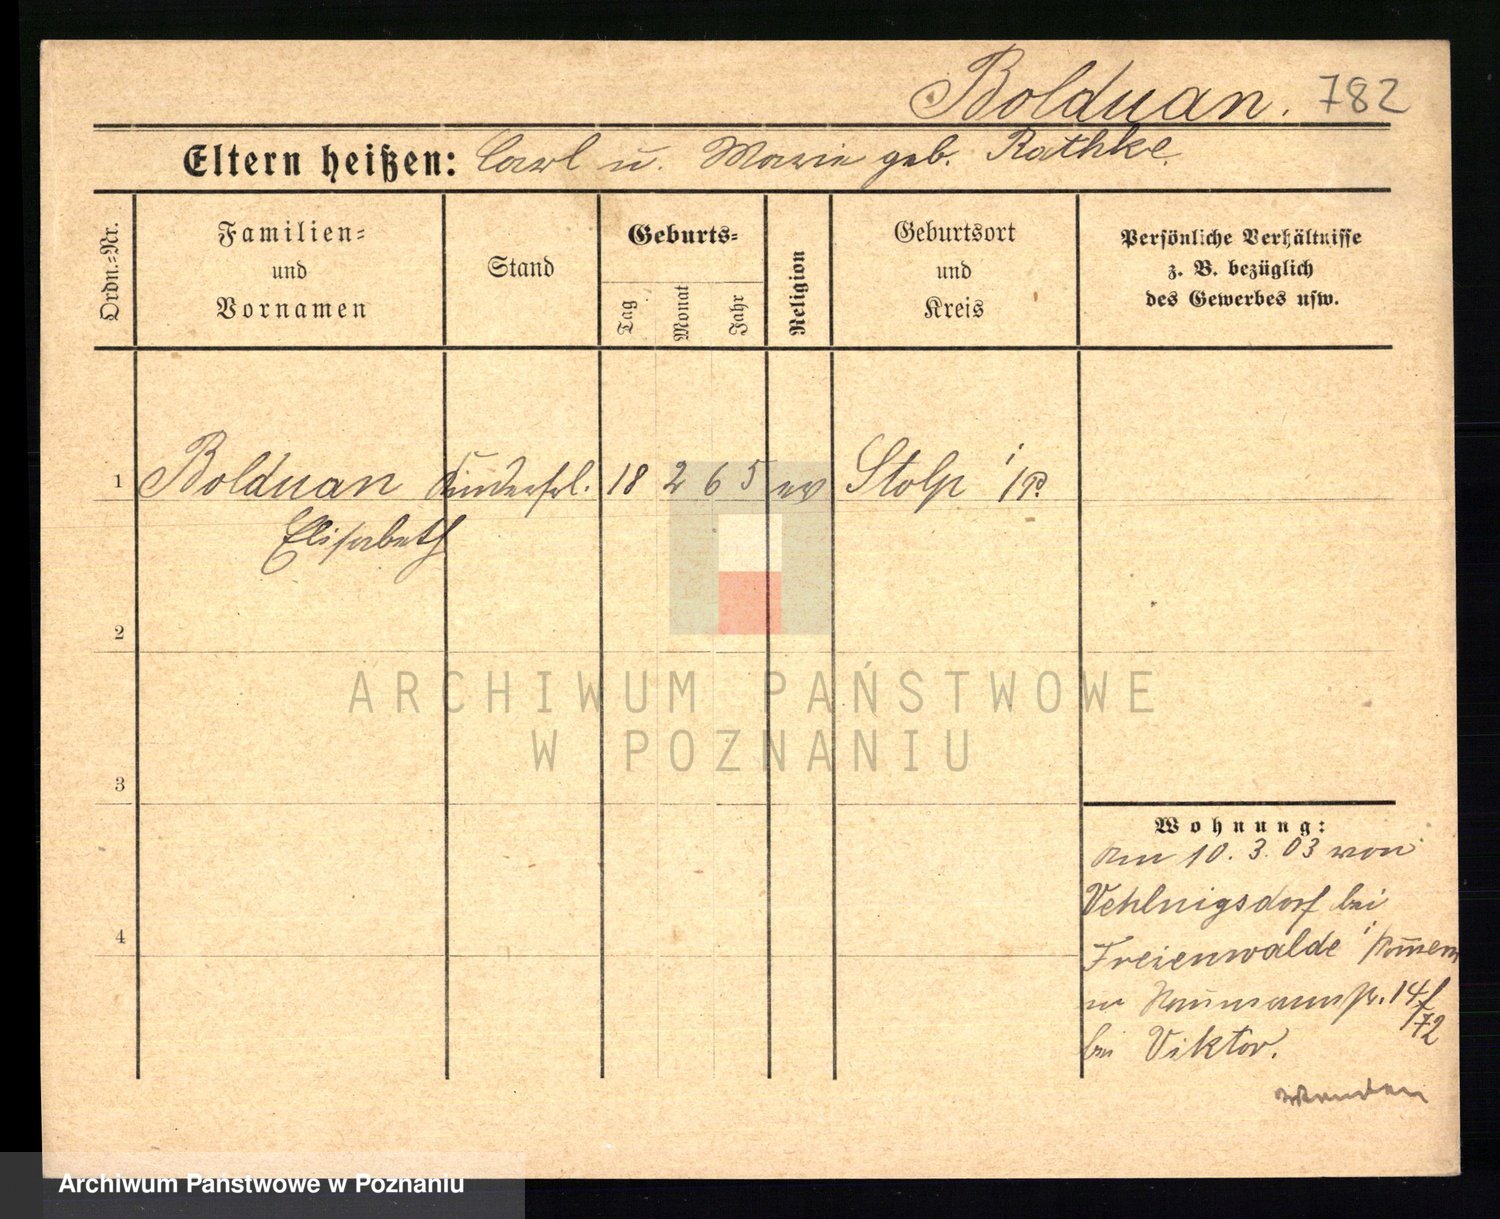 Bolduan. 782
Eltern heißen: Carl u. Marie geb. Rathke.
Ordn.-Nr.
Familien-
und
Vornamen
Stand
Geburts-
Tag
Monat
Jahr
Religion
Geburtsort
und
Kreis
Persönliche Verhältnisse
z. B. bezüglich
des Gewerbes usw.
1 Bolduan Kinderfrl. 18 2 65 ev Stolp i/P.
Elisabeth
2
3
4
ARCHIWUM PAŃSTWOWE
W POZNANIU
Wohnung:
Am 10. 3. 03 von
Vehlnigsdorf bei
Freienwalde i/Pommern
14/72
bei Viktor.
Wenden
Archiwum Państwowe w Poznaniu